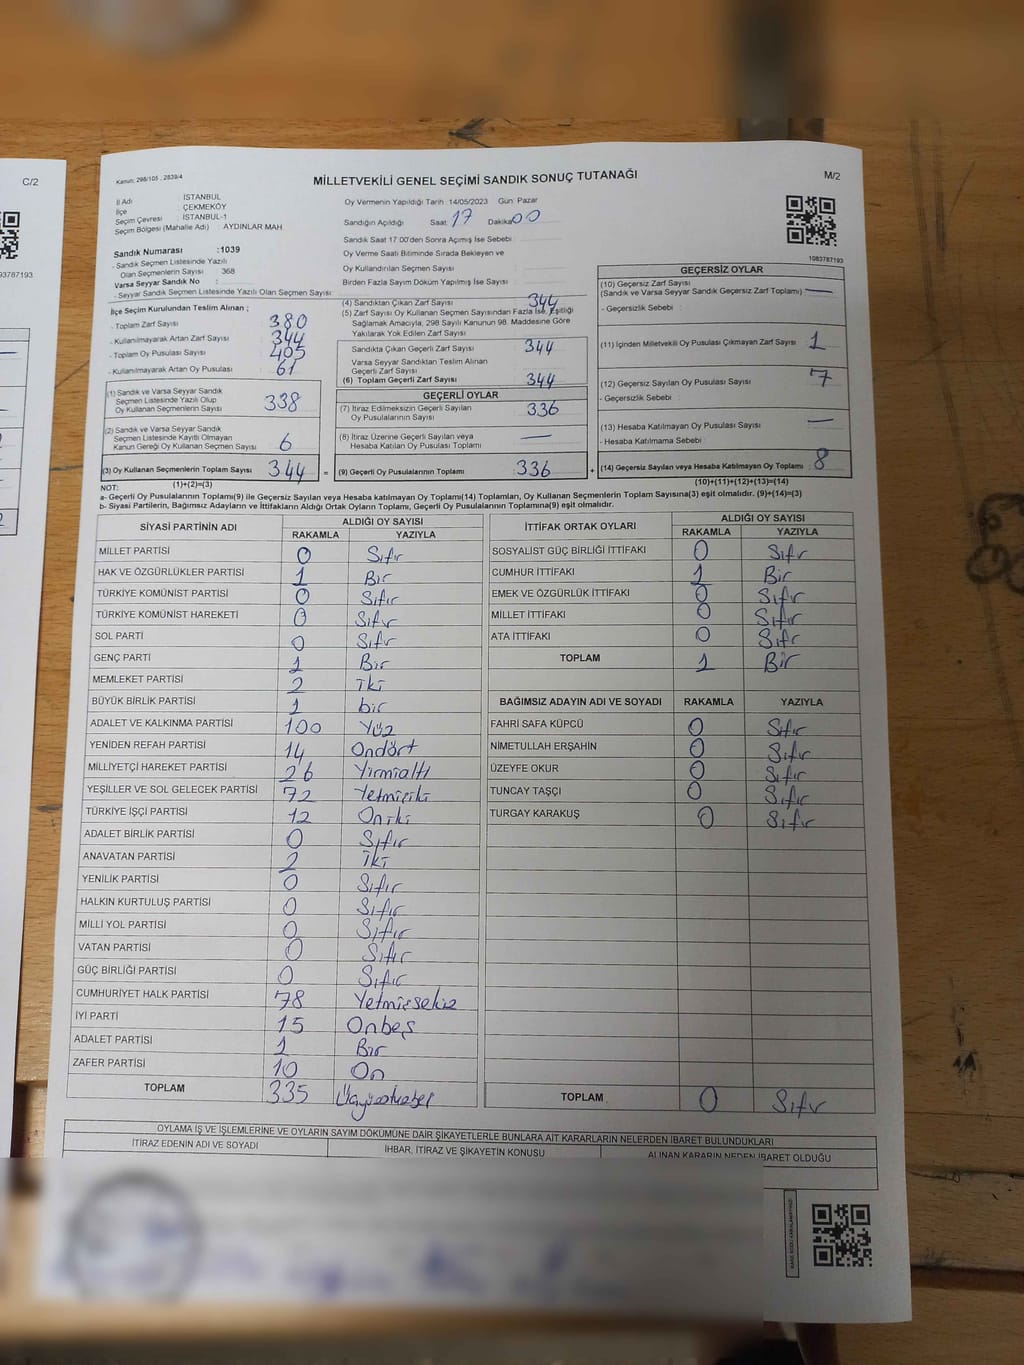 C/2
93787193
Kanun: 298/105 , 2839/4
MİLLETVEKİLİ GENEL SEÇİMİ SANDIK SONUÇ TUTANAĞI
M/2
İl Adı : İSTANBUL
İlçe : ÇEKMEKÖY
Seçim Çevresi : İSTANBUL-1
Seçim Bölgesi (Mahalle Adı) : AYDINLAR MAH.
Oy Vermenin Yapıldığı Tarih :14/05/2023 Gün: Pazar
Sandığın Açıldığı Saat: 17 Dakika: 00
Sandık Saat 17:00'den Sonra Açılmış İse Sebebi :
Oy Verme Saati Bitiminde Sırada Bekleyen ve
Oy Kullandırılan Seçmen Sayısı :
Birden Fazla Sayım Döküm Yapılmış İse Sayısı :
Sandık Numarası :1039
- Sandık Seçmen Listesinde Yazılı
Olan Seçmenlerin Sayısı : 368
Varsa Seyyar Sandık No :
- Seyyar Sandık Seçmen Listesinde Yazılı Olan Seçmen Sayısı:
1083787193
İlçe Seçim Kurulundan Teslim Alınan ;
- Toplam Zarf Sayısı : 380
- Kullanılmayarak Artan Zarf Sayısı : 344
- Toplam Oy Pusulası Sayısı : 405
- Kullanılmayarak Artan Oy Pusulası : 61
(1) Sandık ve Varsa Seyyar Sandık
Seçmen Listesinde Yazılı Olup
Oy Kullanan Seçmenlerin Sayısı 338
(2) Sandık ve Varsa Seyyar Sandık
Seçmen Listesinde Kayıtlı Olmayan
Kanun Gereği Oy Kullanan Seçmen Sayısı 6
(3) Oy Kullanan Seçmenlerin Toplam Sayısı 344 =
(4) Sandıktan Çıkan Zarf Sayısı : 344
(5) Zarf Sayısı Oy Kullanan Seçmen Sayısından Fazla İse, Eşitliği
Sağlamak Amacıyla, 298 Sayılı Kanunun 98. Maddesine Göre
Yakılarak Yok Edilen Zarf Sayısı :
Sandıkta Çıkan Geçerli Zarf Sayısı : 344
Varsa Seyyar Sandıktan Teslim Alınan
Geçerli Zarf Sayısı :
(6) Toplam Geçerli Zarf Sayısı : 344
GEÇERLİ OYLAR
(7) İtiraz Edilmeksizin Geçerli Sayılan
Oy Pusulalarının Sayısı : 336
(8) İtiraz Üzerine Geçerli Sayılan veya
Hesaba Katılan Oy Pusulası Toplamı : —
(9) Geçerli Oy Pusulalarının Toplamı : 336 +
GEÇERSİZ OYLAR
(10) Geçersiz Zarf Sayısı
(Sandık ve Varsa Seyyar Sandık Geçersiz Zarf Toplamı) : —
- Geçersizlik Sebebi :
(11) İçinden Milletvekili Oy Pusulası Çıkmayan Zarf Sayısı : 1
(12) Geçersiz Sayılan Oy Pusulası Sayısı : 7
- Geçersizlik Sebebi :
(13) Hesaba Katılmayan Oy Pusulası Sayısı : —
- Hesaba Katılmama Sebebi :
(14) Geçersiz Sayılan veya Hesaba Katılmayan Oy Toplamı : 8
NOT: (1)+(2)=(3) (10)+(11)+(12)+(13)=(14)
a- Geçerli Oy Pusulalarının Toplamı(9) ile Geçersiz Sayılan veya Hesaba katılmayan Oy Toplamı(14) Toplamları, Oy Kullanan Seçmenlerin Toplam Sayısına(3) eşit olmalıdır. (9)+(14)=(3)
b- Siyasi Partilerin, Bağımsız Adayların ve İttifakların Aldığı Ortak Oyların Toplamı, Geçerli Oy Pusulalarının Toplamına(9) eşit olmalıdır.
SİYASİ PARTİNİN ADI ALDIĞI OY SAYISI
RAKAMLA YAZIYLA
MİLLET PARTİSİ 0 Sıfır
HAK VE ÖZGÜRLÜKLER PARTİSİ 1 Bir
TÜRKİYE KOMÜNİST PARTİSİ 0 Sıfır
TÜRKİYE KOMÜNİST HAREKETİ 0 Sıfır
SOL PARTİ 0 Sıfır
GENÇ PARTİ 1 Bir
MEMLEKET PARTİSİ 2 iki
BÜYÜK BİRLİK PARTİSİ 1 bir
ADALET VE KALKINMA PARTİSİ 100 Yüz
YENİDEN REFAH PARTİSİ 14 Ondört
MİLLİYETÇİ HAREKET PARTİSİ 26 Yirmialtı
YEŞİLLER VE SOL GELECEK PARTİSİ 72 Yetmişiki
TÜRKİYE İŞÇİ PARTİSİ 12 Oniki
ADALET BİRLİK PARTİSİ 0 Sıfır
ANAVATAN PARTİSİ 2 İki
YENİLİK PARTİSİ 0 Sıfır
HALKIN KURTULUŞ PARTİSİ 0 Sıfır
MİLLİ YOL PARTİSİ 0 Sıfır
VATAN PARTİSİ 0 Sıfır
GÜÇ BİRLİĞİ PARTİSİ 0 Sıfır
CUMHURİYET HALK PARTİSİ 78 Yetmişsekiz
İYİ PARTİ 15 Onbeş
ADALET PARTİSİ 1 Bir
ZAFER PARTİSİ 10 On
TOPLAM 335
İTTİFAK ORTAK OYLARI ALDIĞI OY SAYISI
RAKAMLA YAZIYLA
SOSYALİST GÜÇ BİRLİĞİ İTTİFAKI 0 Sıfır
CUMHUR İTTİFAKI 1 Bir
EMEK VE ÖZGÜRLÜK İTTİFAKI 0 Sıfır
MİLLET İTTİFAKI 0 Sıfır
ATA İTTİFAKI 0 Sıfır
TOPLAM 1 Bir
BAĞIMSIZ ADAYIN ADI VE SOYADI RAKAMLA YAZIYLA
FAHRİ SAFA KÜPCÜ 0 Sıfır
NİMETULLAH ERŞAHİN 0 Sıfır
ÜZEYFE OKUR 0 Sıfır
TUNCAY TAŞÇI 0 Sıfır
TURGAY KARAKUŞ 0 Sıfır
TOPLAM 0 Sıfır
OYLAMA İŞ VE İŞLEMLERİNE VE OYLARIN SAYIM DÖKÜMÜNE DAİR ŞİKAYETLERLE BUNLARA AİT KARARLARIN NELERDEN İBARET BULUNDUKLARI
İTİRAZ EDENİN ADI VE SOYADI İHBAR, İTİRAZ VE ŞİKAYETİN KONUSU ALINAN KARARIN NEDEN İBARET OLDUĞU